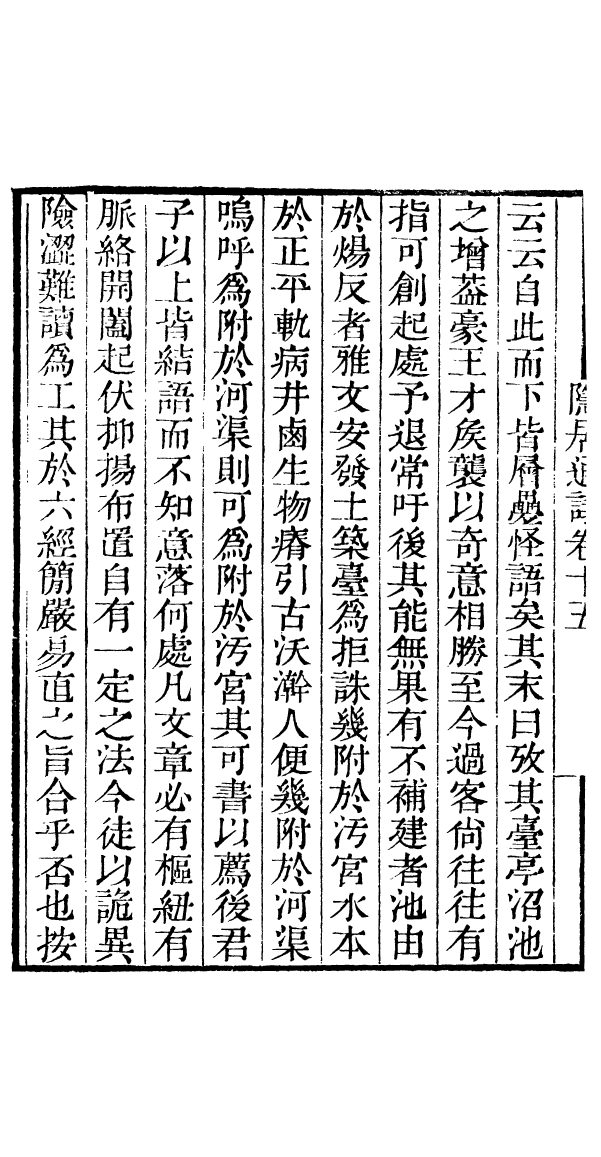 隱居通議卷十五
云云自此而下皆層疊怪語矣其末曰攷其臺亭沼池
之增葢豪王才矦襲以奇意相勝至今過客尙往往有
指可創起處予退常吁後其能無果有不補建者池由
於煬反者雅文安發土築臺爲拒誅幾附於汚宮水本
於正平軌病井鹵生物瘠引古沃澣人便幾附於河渠
嗚呼爲附於河渠則可爲附於汚宮其可書以薦後君
子以上皆結語而不知意落何處凡文章必有樞紐有
脈絡開闔起伏抑揚布置自有一定之法今徒以詭異
險澀難讀爲工其於六經簡嚴易直之旨合乎否也按